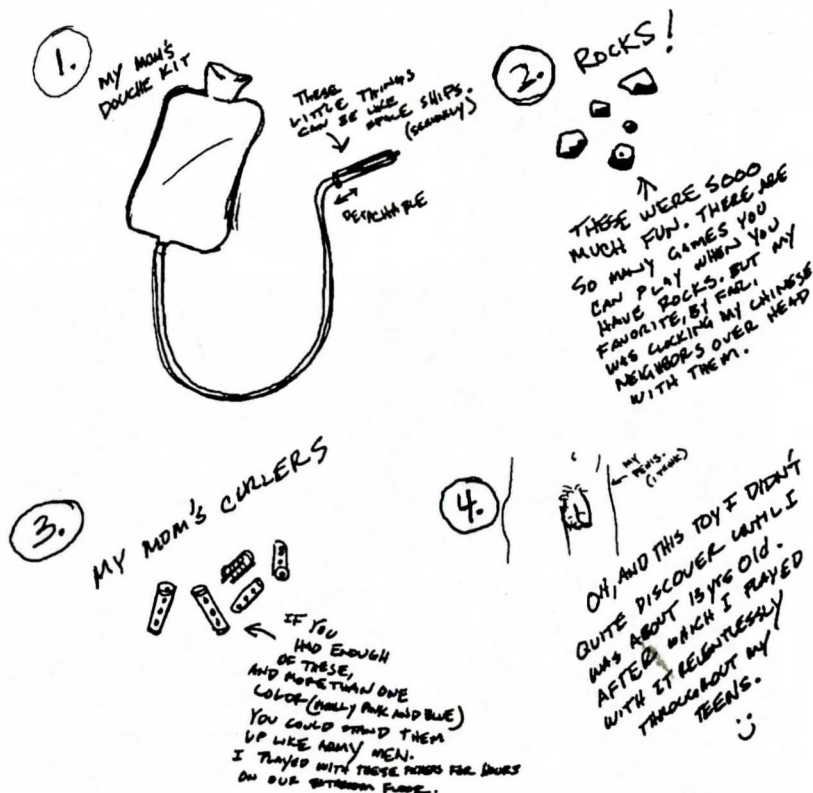 1.
MY MOM'S
DOUCHE KIT
THESE
LITTLE THINGS
CAN BE LIKE
SPACE SHIPS.
(SERIOUSLY)
DETACHABLE
2.
ROCKS!
THESE WERE SOOO
MUCH FUN. THERE ARE
SO MANY GAMES YOU
CAN PLAY WHEN YOU
HAVE ROCKS. BUT MY
FAVORITE, BY FAR,
WAS CLOCKING MY CHINESE
NEIGHBORS OVER HEAD
WITH THEM.
3.
MY MOM'S CURLERS
IF YOU
HAD ENOUGH
OF THESE,
AND MORE THAN ONE
COLOR (MAINLY PINK AND BLUE)
YOU COULD STAND THEM
UP LIKE ARMY MEN.
I PLAYED WITH THESE FOR HOURS
ON OUR BATHROOM FLOOR.
4.
MY
PENIS.
(I THINK)
OH, AND THIS TOY I DIDN'T
QUITE DISCOVER UNTIL I
WAS ABOUT 13 YRS Old.
AFTER WHICH I PLAYED
WITH IT RELENTLESSLY
THROUGHOUT MY
TEENS.